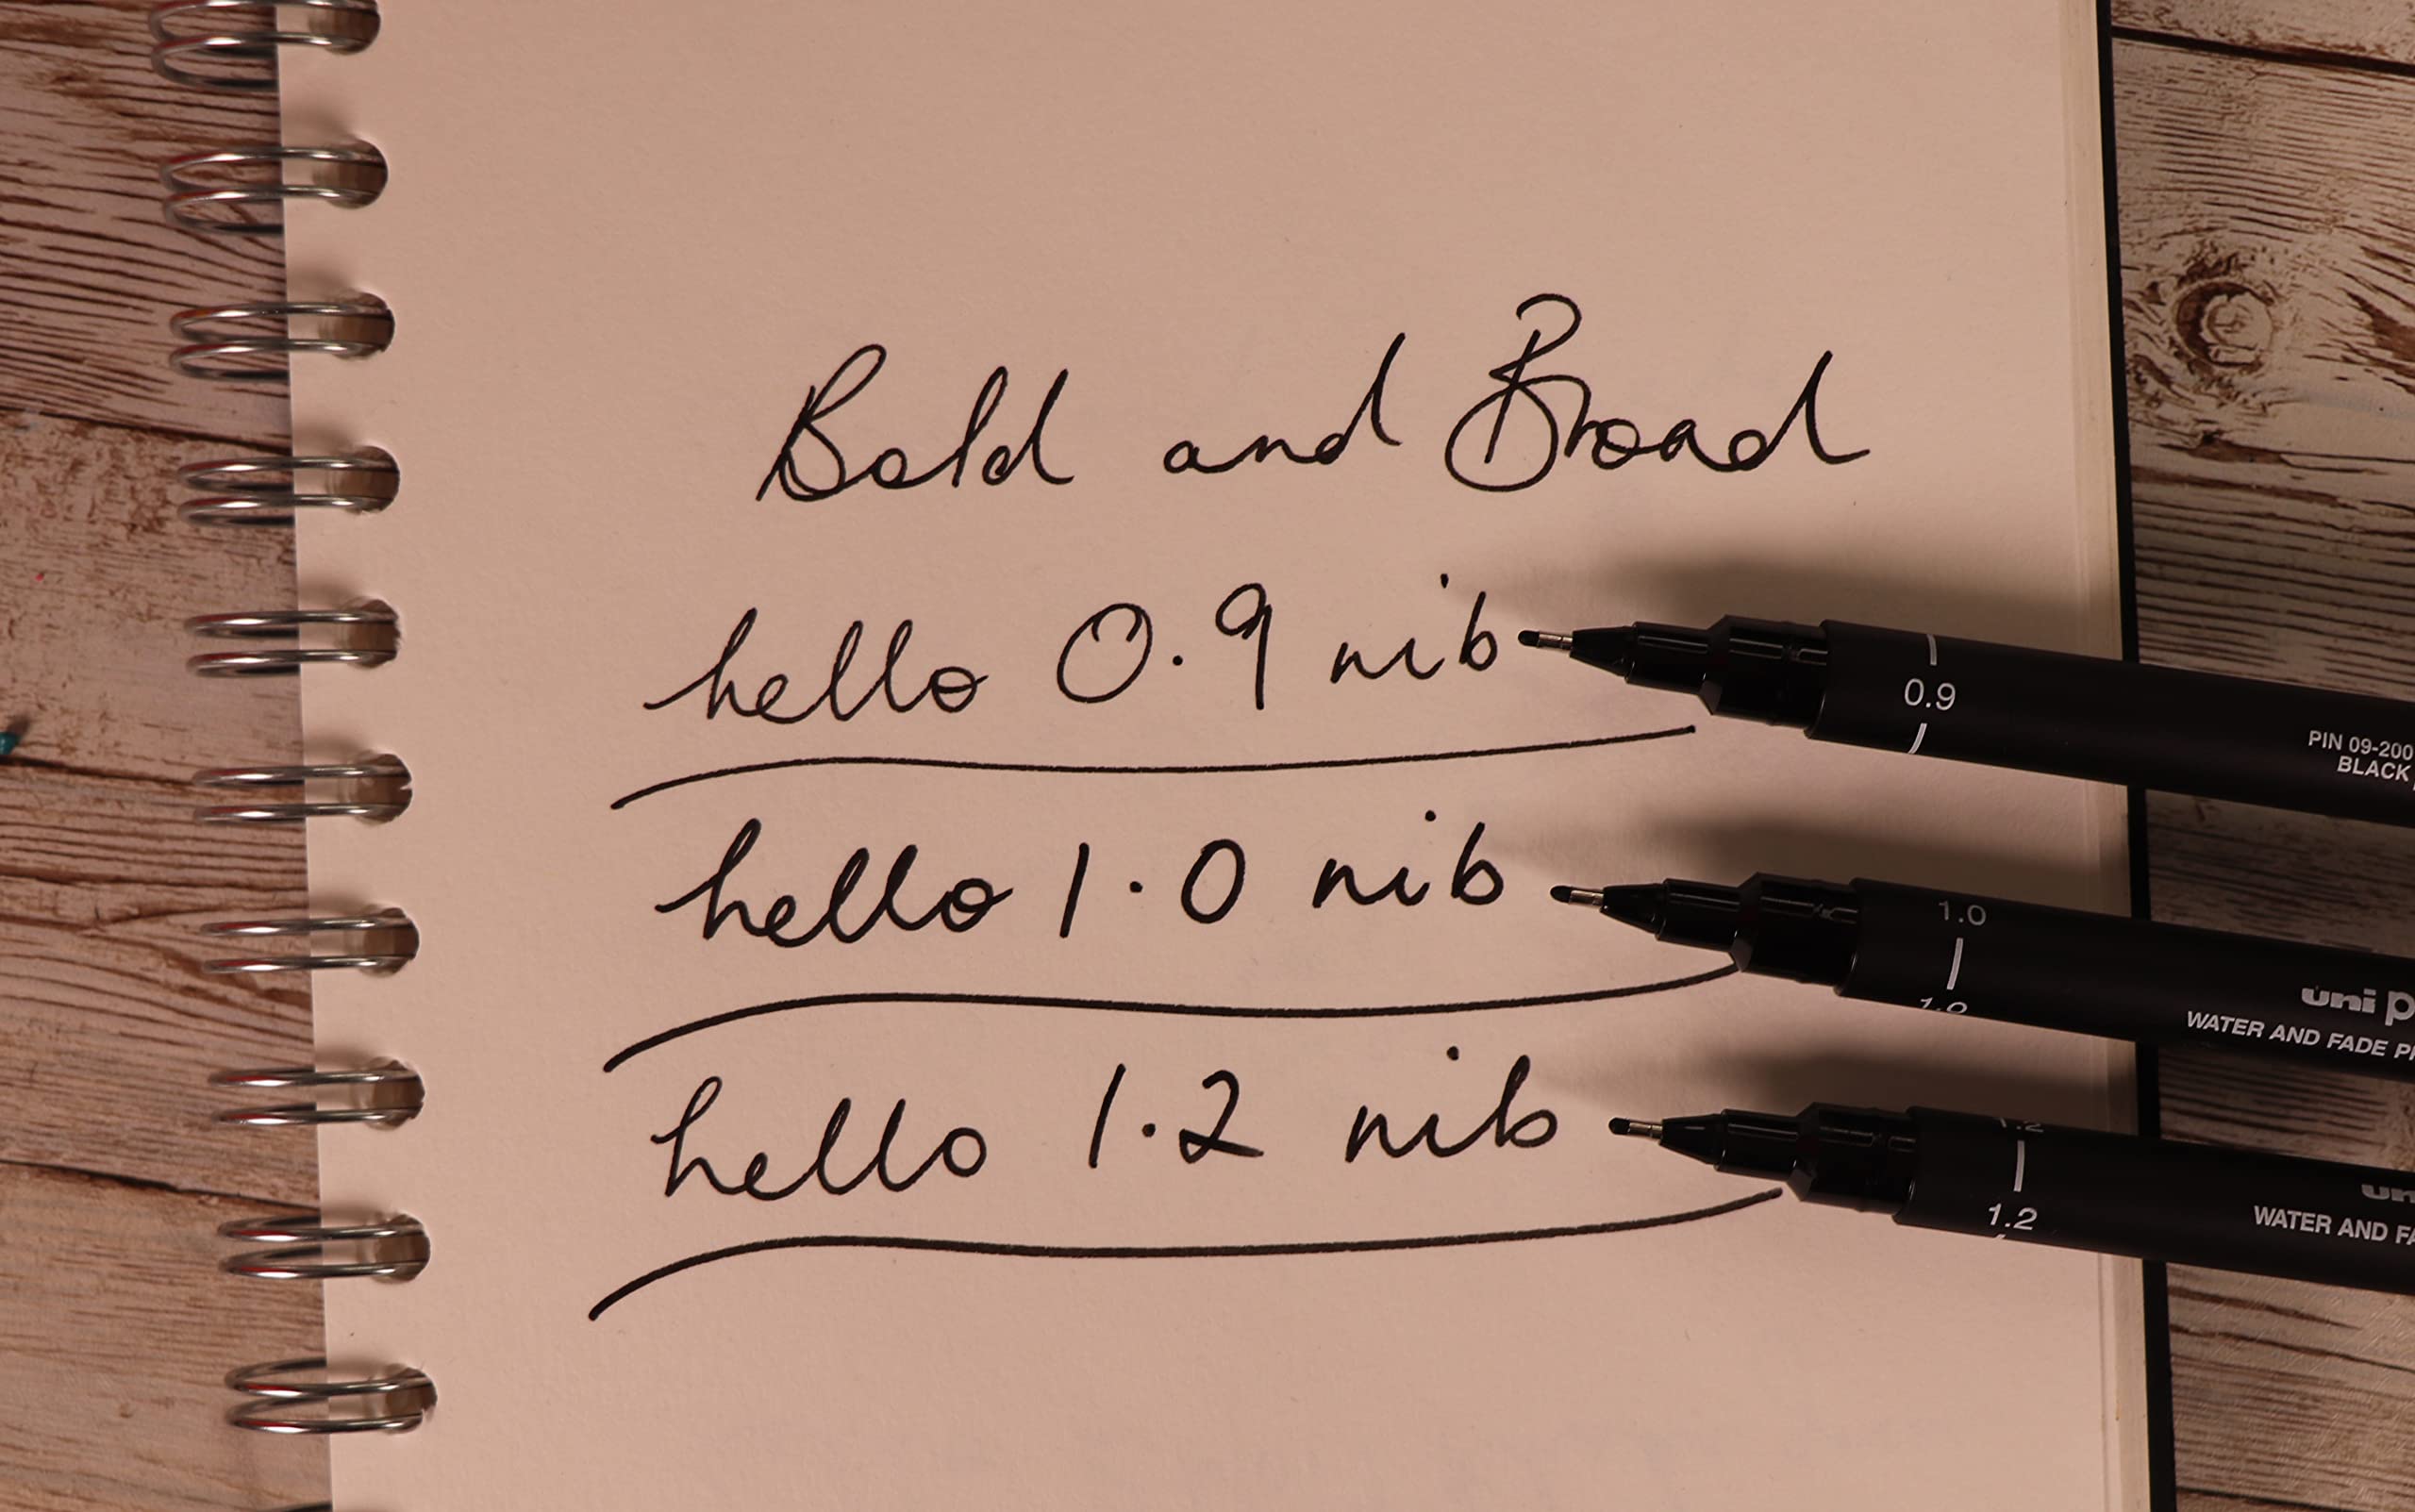 Bold and Broad
hello 0.9 nib
0.9
PIN 09-200
BLACK
hello 1.0 nib
1.0
1.0
uni
WATER AND FADE
hello 1.2 nib
1.2
1.2
WATER AND